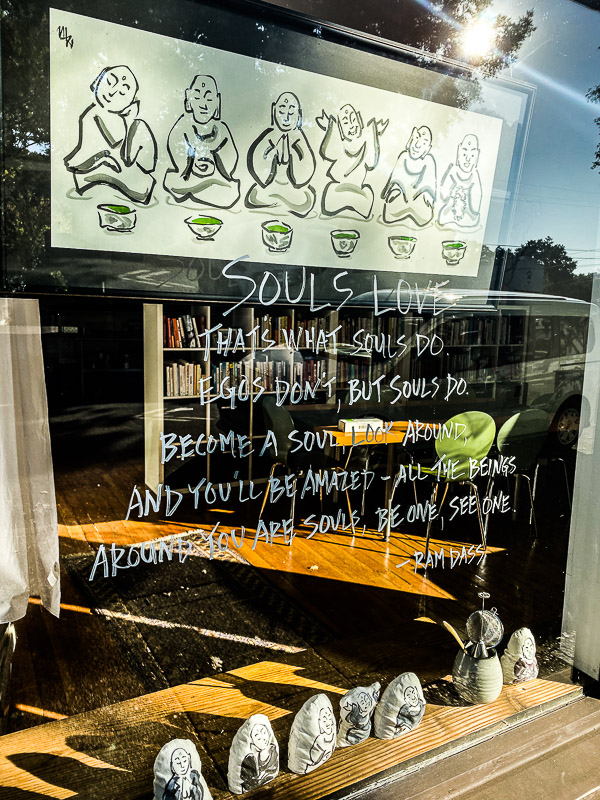 SOULS LOVE
THATS WHAT SOULS DO.
EGOS DON'T, BUT SOULS DO.
BECOME A SOUL, LOOK AROUND,
AND YOU'LL BE AMAZED - ALL THE BEINGS
AROUND YOU ARE SOULS. BE ONE, SEE ONE.
- RAM DASS